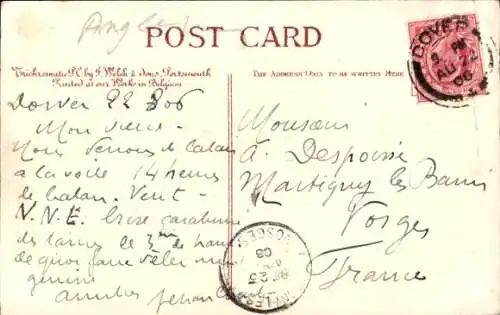 Anglet
POST CARD
Trichromatic P.C. by F. Welch & Sons, Portsmouth
Printed at our Works in Belgium
THE ADDRESS ONLY TO BE WRITTEN HERE
DOVER
PM
AU 22
06
Dover 22 8 06
Mon vieux -
Nous venons de Calais
a la voile 14 heures
de Calais. Vent -
N.N.E. brise carabinée
des lames de 3m de haut
de quoi faire vêler une
génisse
amitiés Jehan
Monsieur
A. Despoisse
Martigny les Bains
Vosges
France
VOSGES
25
06